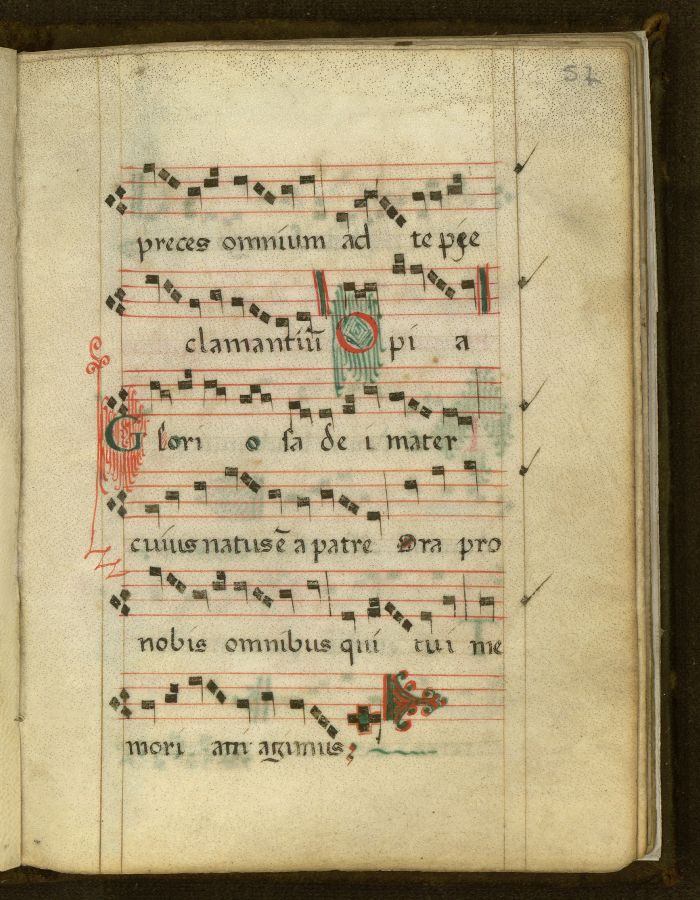 52
preces omnium ad te pie
clamantiũ O pi a
Glori o sa de i mater
cuius natus ẽ a patre Ora pro
nobis omnibus qui tui me
mori am agimus;